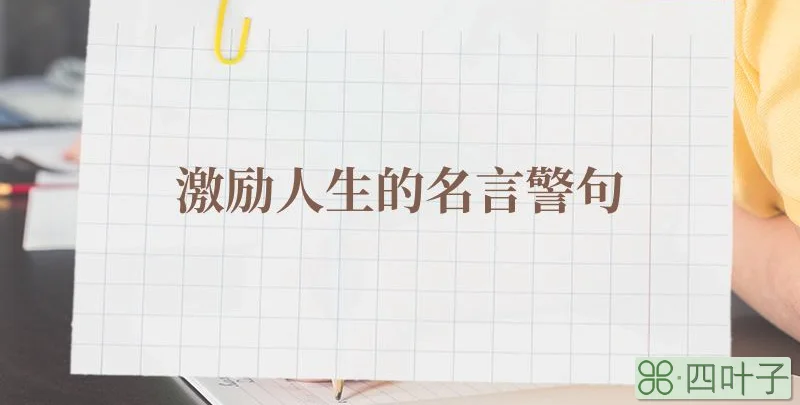 激励人生的名言警句
四叶子